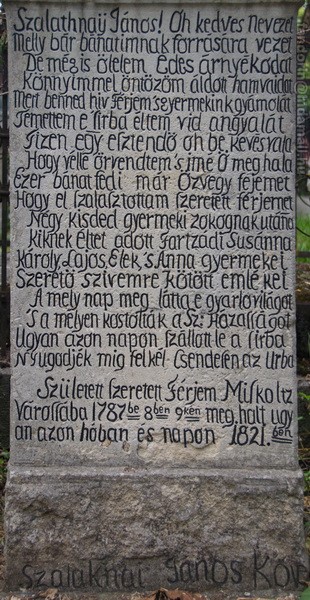 Szalathnaij János! Oh kedves Nevezet
Melly bár bánatimnak forrására vezet
De még is ölelem édes árnyékodat
Könnyimmel öntözöm áldott hamvaidat
Mert benned hív férjem 's gyermekink gyámolát
Temettem e' sirba éltem vid angyalát
Tizen egy esztendő oh be kevés vala
Hogy vélle örvendtem 's jme Ő meg hala
Ezer bánat fedi már Özvegy fejemet
Hogy el szalasztottam szeretett férjemet
Négy kisded gyermeki zokognak utánna
Kiknek éltet adott Fartzádi Susánna
Károly, Lajos, Elek, 's Anna gyermekei
Szerető szivemre kötött emlékei
A mely nap meg látta e' gyarló világot
'S a melyen kóstolták a Sz: Házasságot
Ugyan azon napon szállott le a sirba
Nyugodjék míg felkél Csendesen az Urba
Született szeretett Férjem Miskoltz
Várossába 1787be 8ben 9kén meg halt ugy
an azon hóban és napon 1821.ben
Szalaknai János Köv